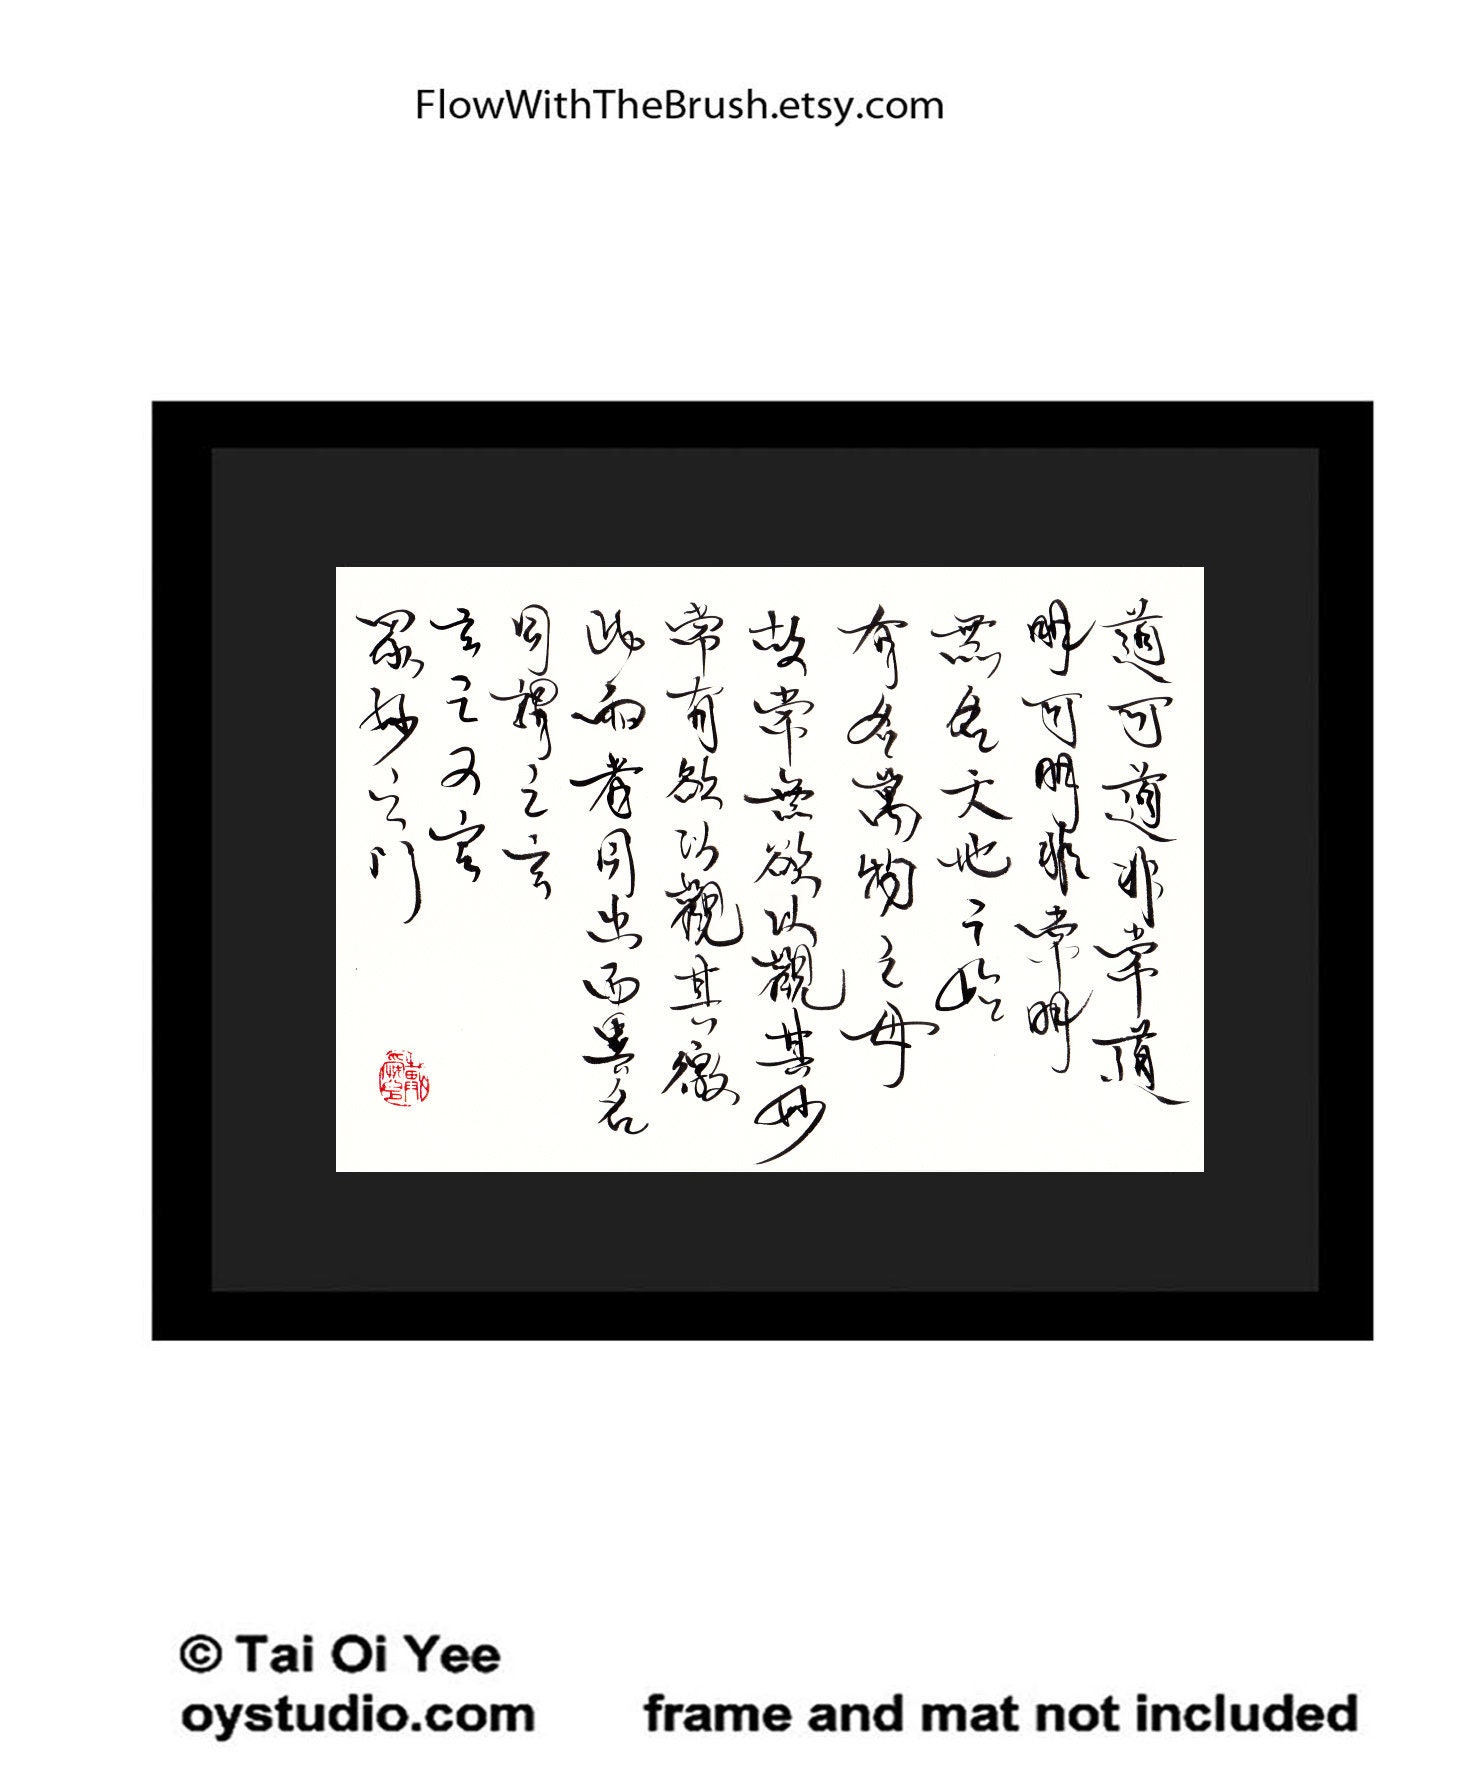 FlowWithTheBrush.etsy.com
道可道非常道
明可明非常明
無名天地之始
有名萬物之母
故常無欲以觀其妙
常有欲以觀其徼
此兩者同出而異名
同謂之玄
玄之又玄
眾妙之門
© Tai Oi Yee
oystudio.com
frame and mat not included